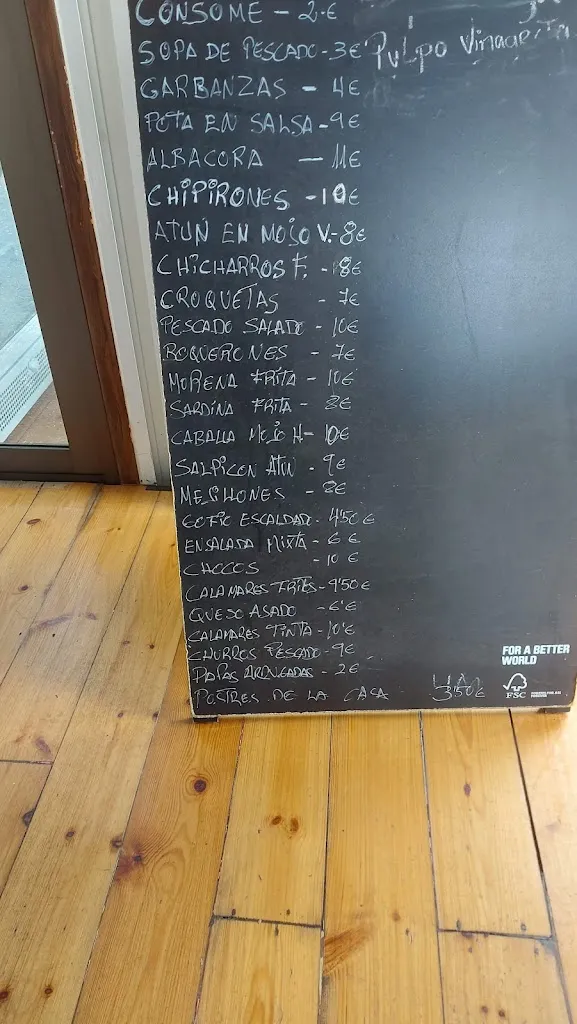 CONSOME - 2.€
SOPA DE PESCADO - 3€
Pulpo Vinagreta
GARBANZAS - 4€
POTA EN SALSA - 9€
ALBACORA - 11€
CHIPIRONES - 10€
ATUN EN MOJO V. - 8€
CHICHARROS F. - 8€
CROQUETAS - 7€
PESCADO SALADO - 10€
BOQUERONES - 7€
MORENA FRITA - 10€
SARDINA FRITA - 8€
CABALLA MOJO H - 10€
SALPICON ATUN - 9€
MEJILLONES - 8€
GOFIO ESCALDADO - 4'50€
ENSALADA MIXTA - 6€
CHOCOS - 10€
CALAMARES FRITOS - 9'50€
QUESO ASADO - 6'€
CALAMARES TINTA - 10'€
CHURROS PESCADO - 9€
PAPAS ARRUGADAS - 2€
POSTRES DE LA CASA 3'50€
FOR A BETTER
WORLD
FSC